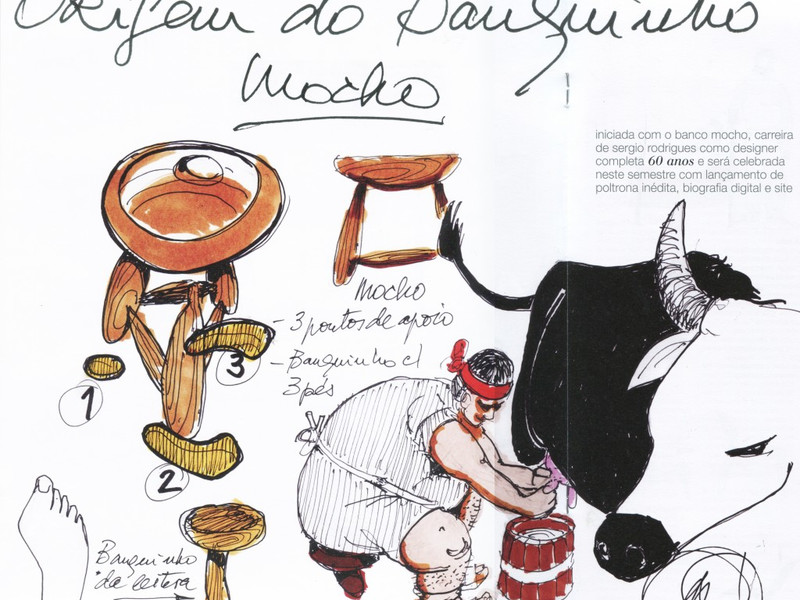 Origem do Banquinho
Mocho
iniciada com o banco mocho, carreira
de sergio rodrigues como designer
completa 60 anos e será celebrada
neste semestre com lançamento de
poltrona inédita, biografia digital e site
Mocho
- 3 pontos de apoio
- Banquinho c/
3 pés
3
1
2
Banquinho
da leitera